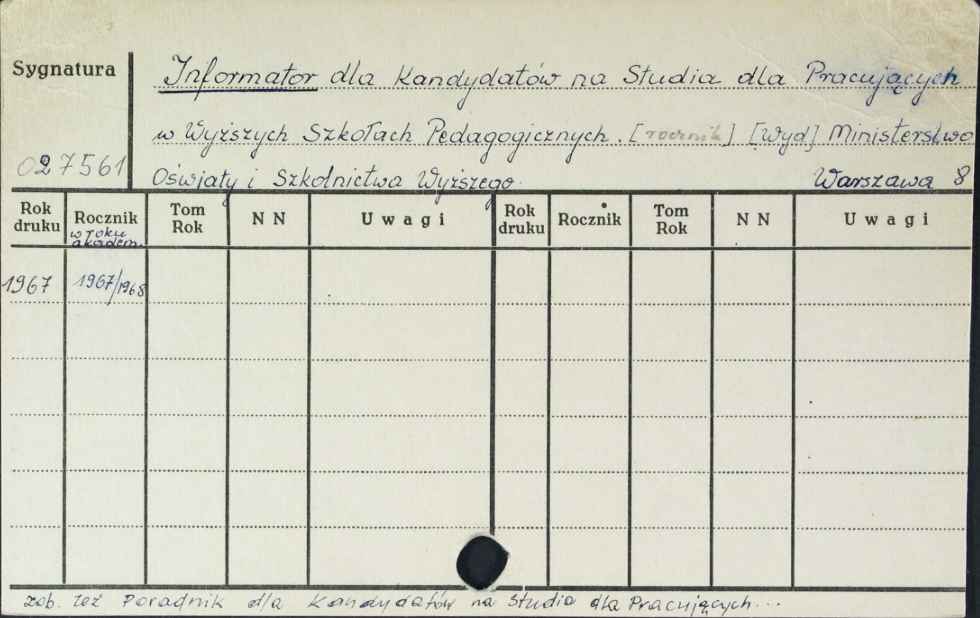 Sygnatura
Informator dla Kandydatów na Studia dla Pracujących
w Wyższych Szkołach Pedagogicznych. [rocznik] [Wyd] Ministerstwo
027561 Oświaty i Szkolnictwa Wyższego. Warszawa 8
Rok druku Rocznik w roku akadem. Tom Rok N N Uwagi Rok druku Rocznik Tom Rok N N Uwagi
1967 1967/1968
zob. też Poradnik dla Kandydatów na Studia dla Pracujących...